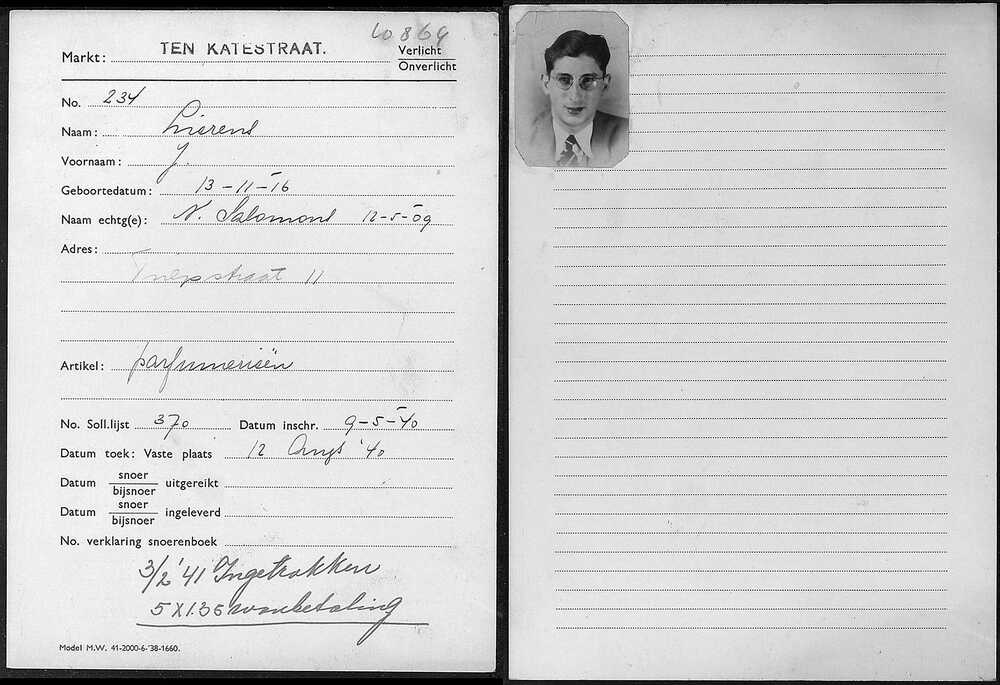 60869
Markt: TEN KATESTRAAT.
Verlicht
Onverlicht
No. 234
Naam: Lierens
Voornaam: J.
Geboortedatum: 13-11-16
Naam echtg(e): N. Salomons 12-5-09
Adres:
Tulpstraat 11
Artikel: parfumeriën
No. Soll.lijst 370 Datum inschr. 9-5-40
Datum toek: Vaste plaats 12 Aug '40
Datum snoer bijsnoer uitgereikt
Datum snoer bijsnoer ingeleverd
No. verklaring snoerenboek
3/2 '41 Ingetrokken
5 X 1.35 wanbetaling
Model M.W. 41-2000-6-'38-1660.